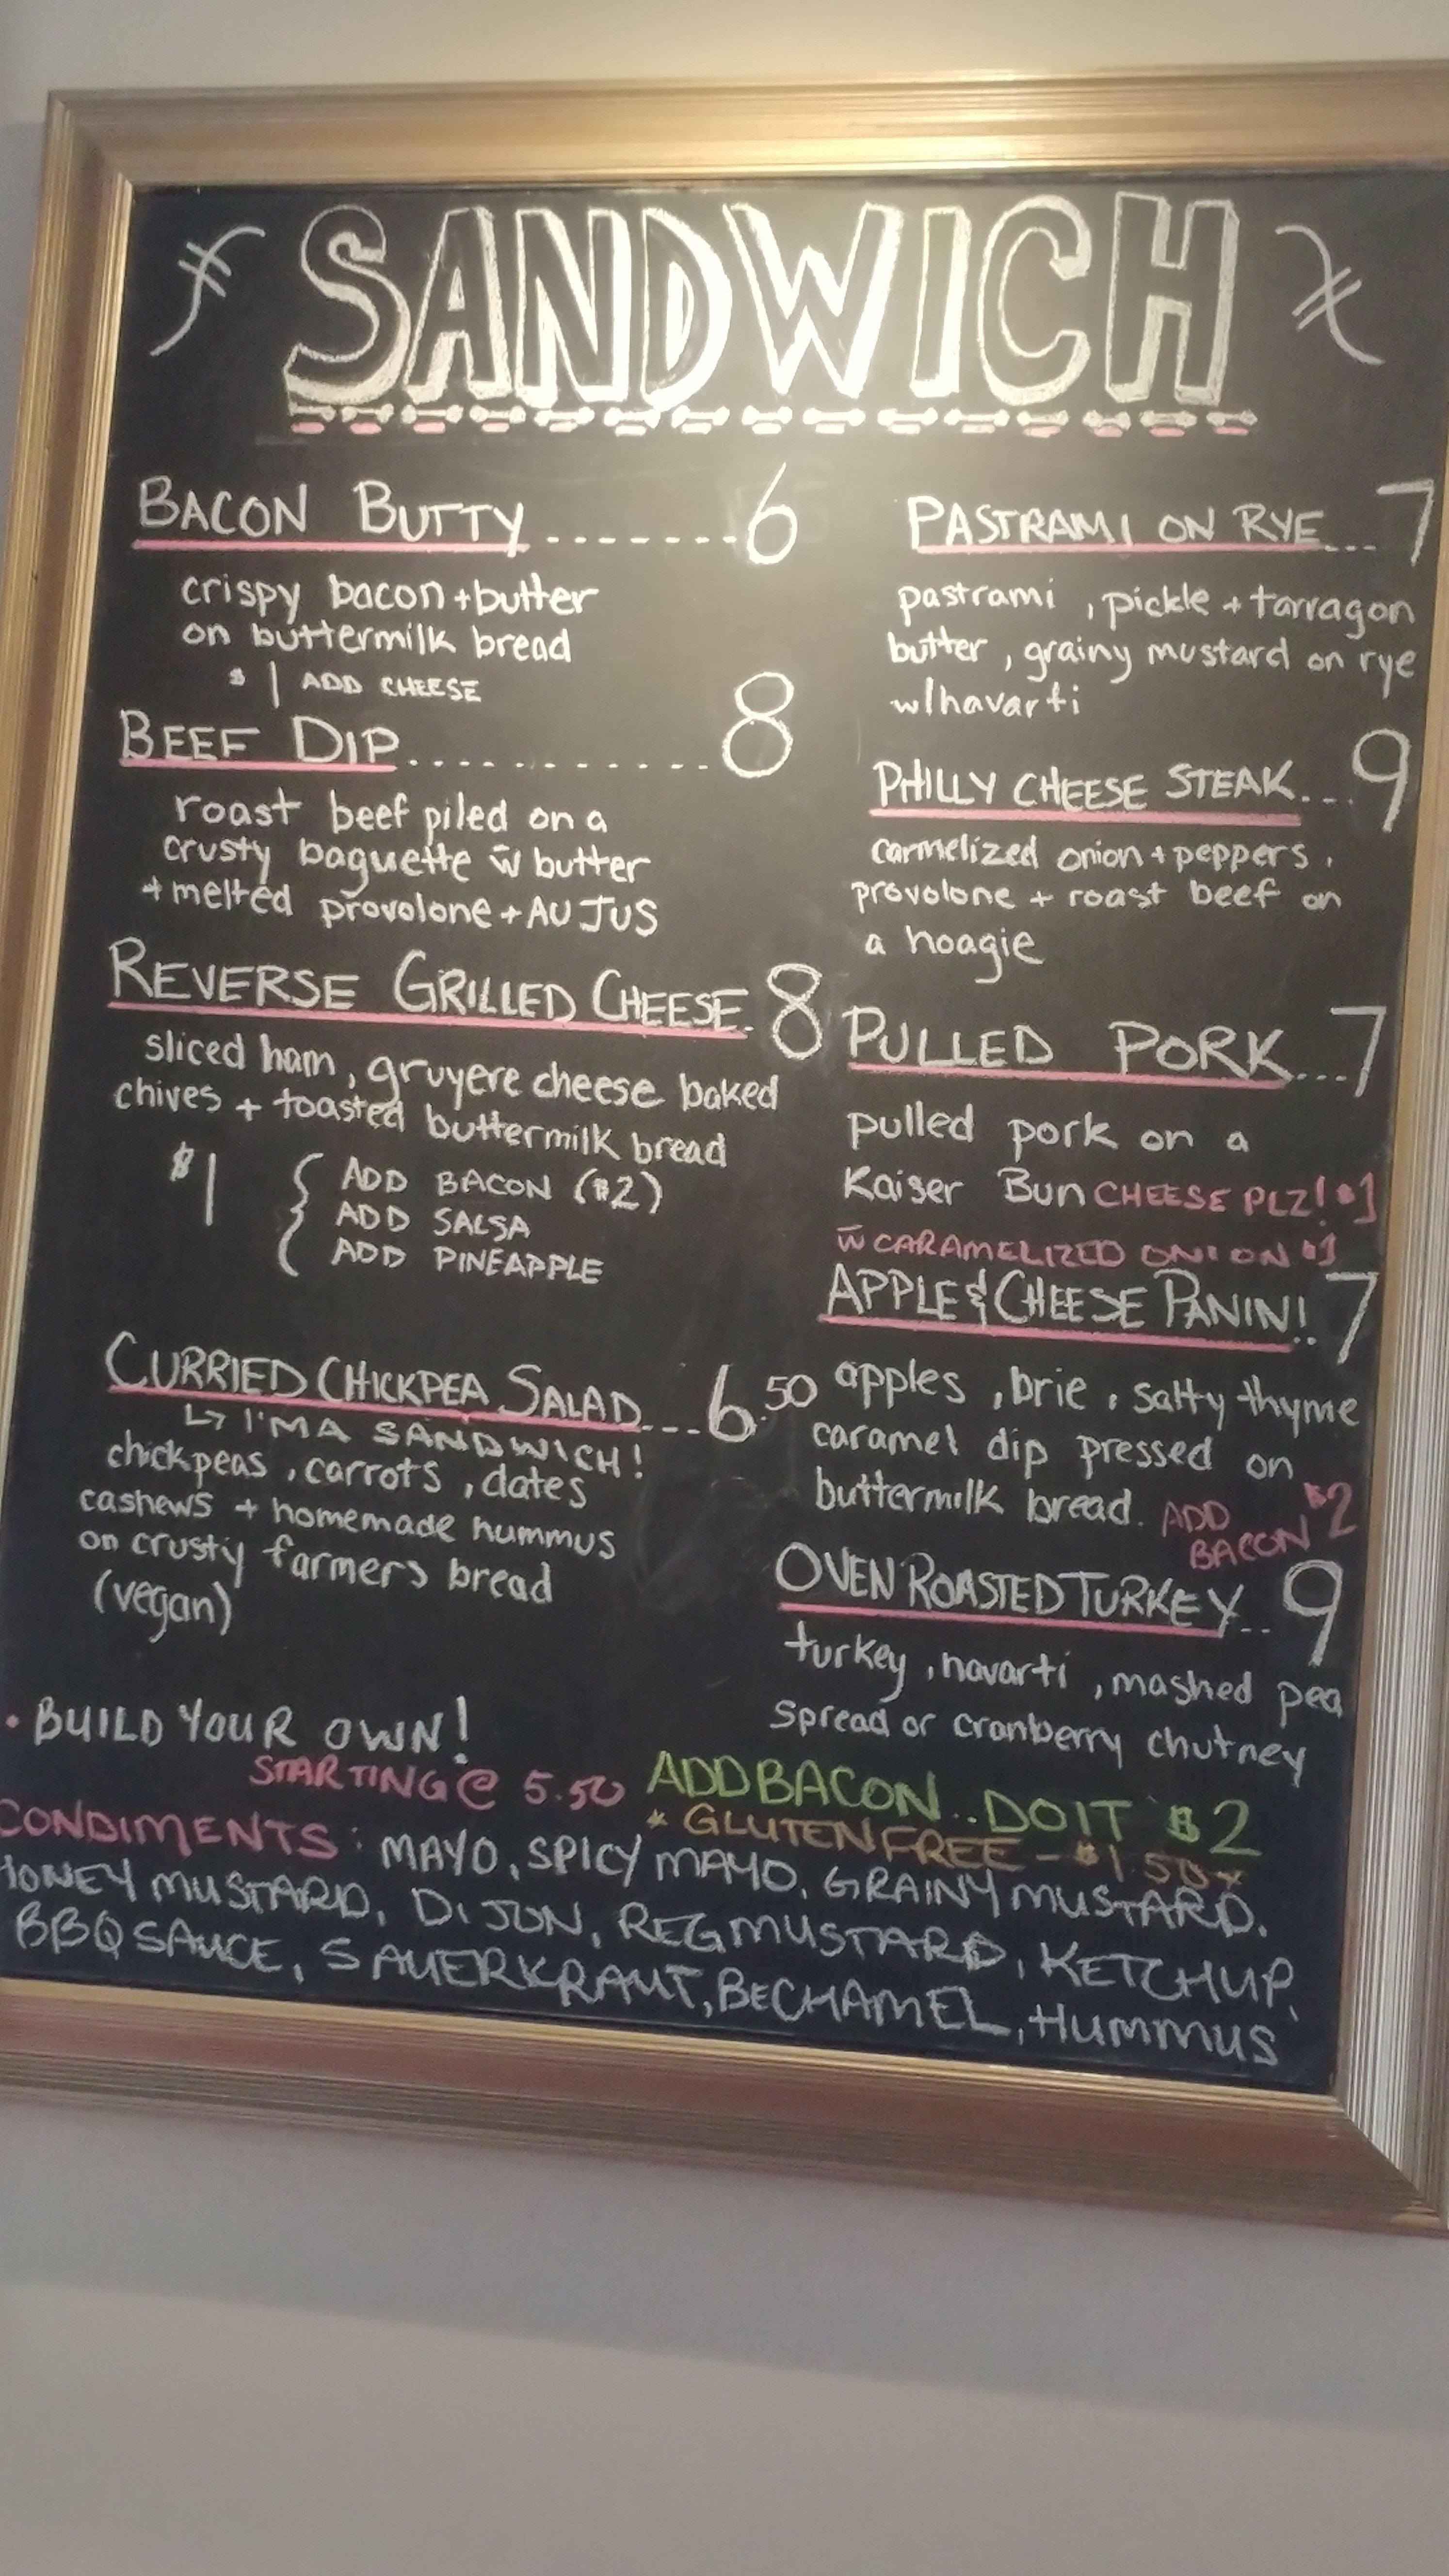 SANDWICH
BACON BUTTY.......6
crispy bacon + butter
on buttermilk bread
$1 ADD CHEESE
BEEF DIP............8
roast beef piled on a
crusty baguette w̄ butter
+ melted provolone + AU JUS
REVERSE GRILLED CHEESE.8
sliced ham, gruyere cheese baked
chives + toasted buttermilk bread
$1 { ADD BACON ($2)
ADD SALSA
ADD PINEAPPLE
CURRIED CHICKPEA SALAD...6.50
↳ I'M A SANDWICH!
chickpeas, carrots, dates
cashews + homemade hummus
on crusty farmers bread
(vegan)
PASTRAMI ON RYE...7
pastrami, pickle + tarragon
butter, grainy mustard on rye
w/havarti
PHILLY CHEESE STEAK...9
carmelized onion + peppers,
provolone + roast beef on
a hoagie
PULLED PORK...7
pulled pork on a
Kaiser Bun CHEESE PLZ! $1
w̄ CARAMELIZED ONION $1
APPLE & CHEESE PANINI.7
apples, brie, salty thyme
caramel dip pressed on
buttermilk bread. ADD BACON $2
OVEN ROASTED TURKEY..9
turkey, havarti, mashed pea
spread or cranberry chutney
• BUILD YOUR OWN!
STARTING @ 5.50
ADD BACON..DO IT $2
* GLUTEN FREE - $1.50 *
CONDIMENTS: MAYO, SPICY MAYO, GRAINY MUSTARD,
HONEY MUSTARD, DIJON, REG MUSTARD, KETCHUP,
BBQ SAUCE, SAUERKRAUT, BECHAMEL, HUMMUS